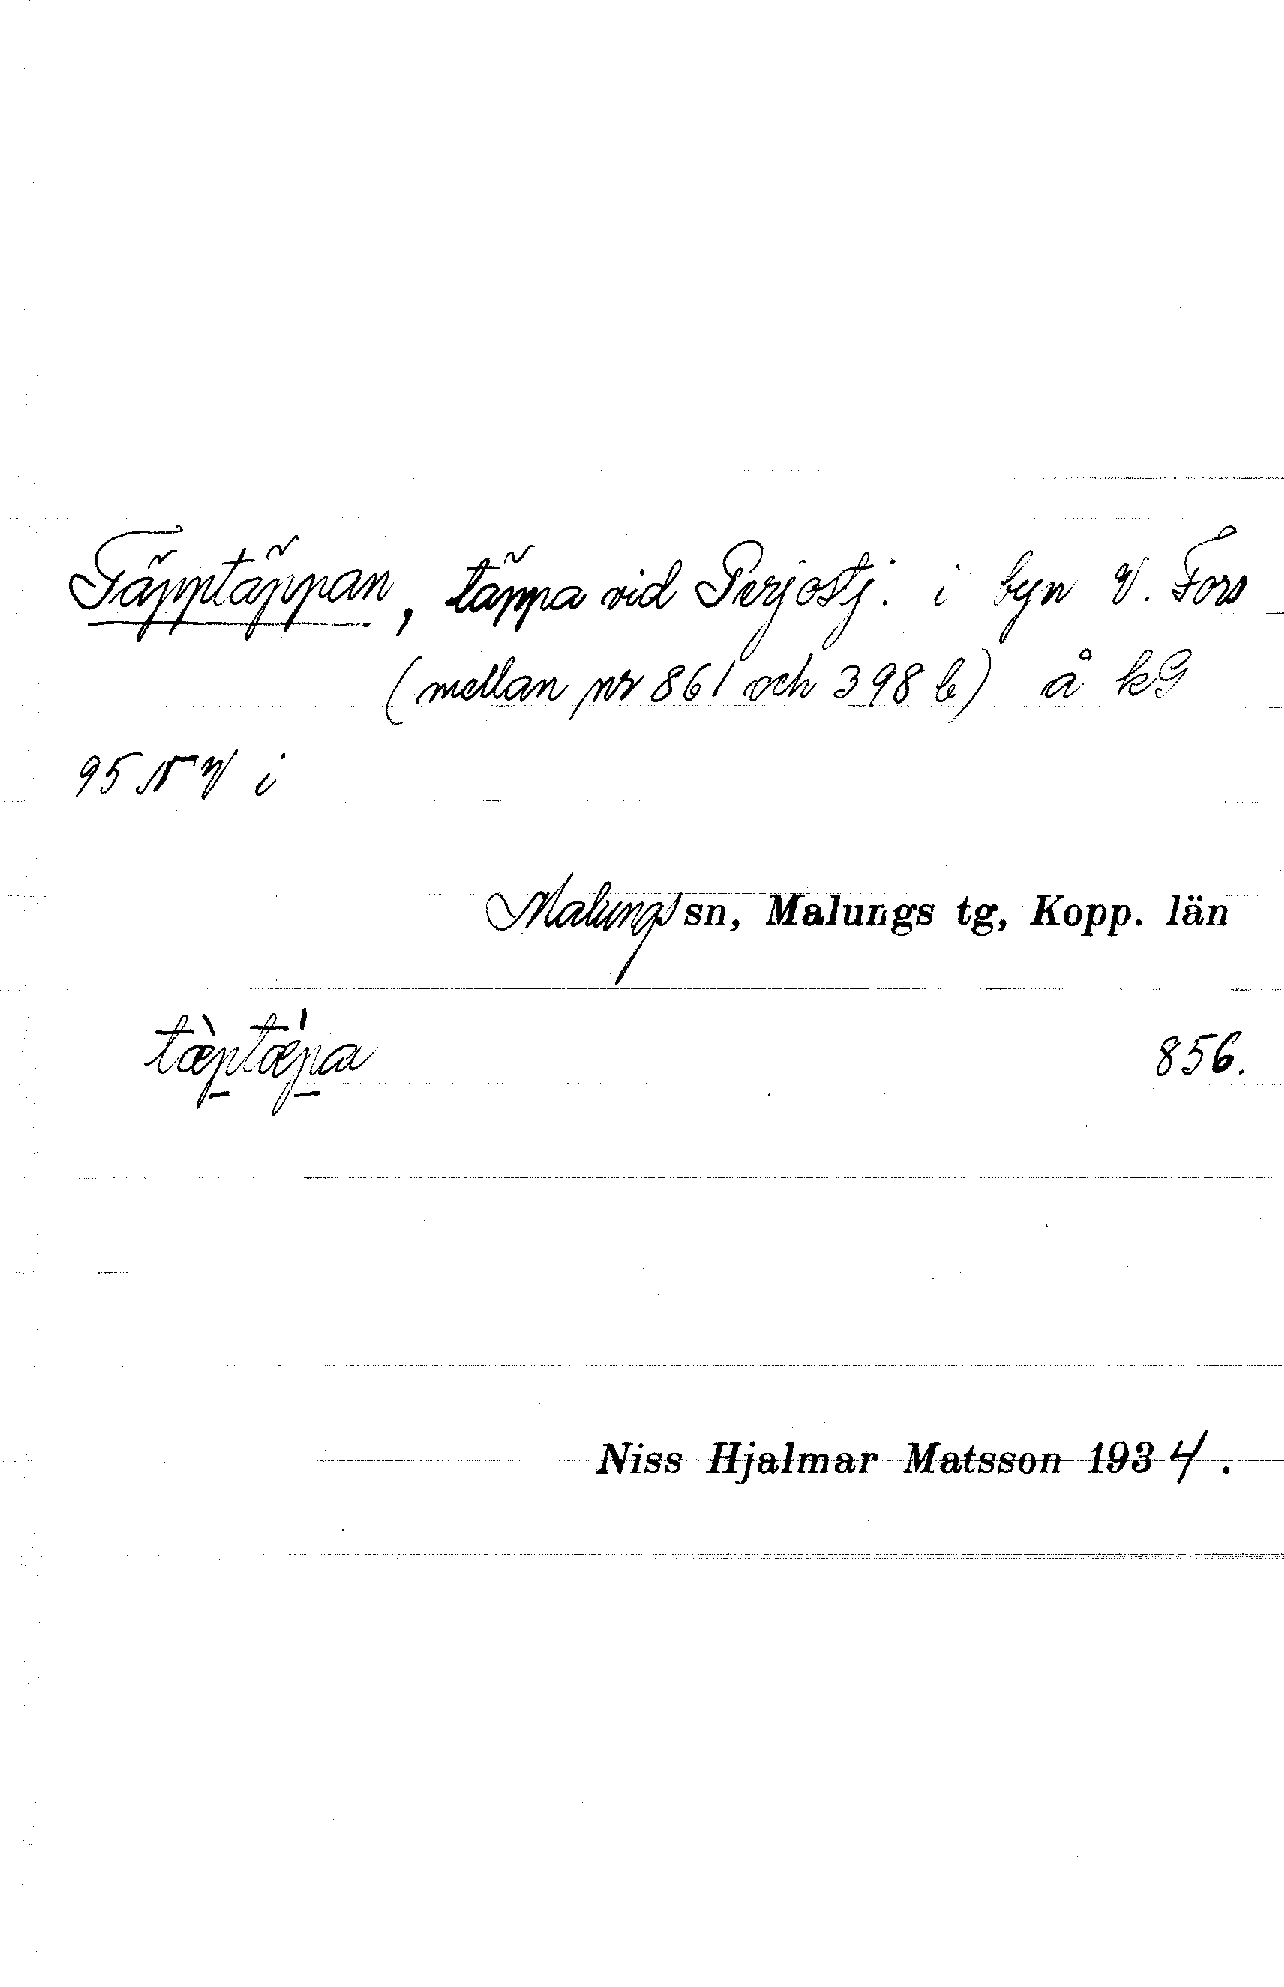 Täpptäppan, täppa vid Perjostj. i byn V. Fors
(mellan nr 861 och 398 b) å kG
95 NV i
Malungs sn, Malungs tg, Kopp. län
tæ̀ptæ̍pa 856.
Niss Hjalmar Matsson 1934.